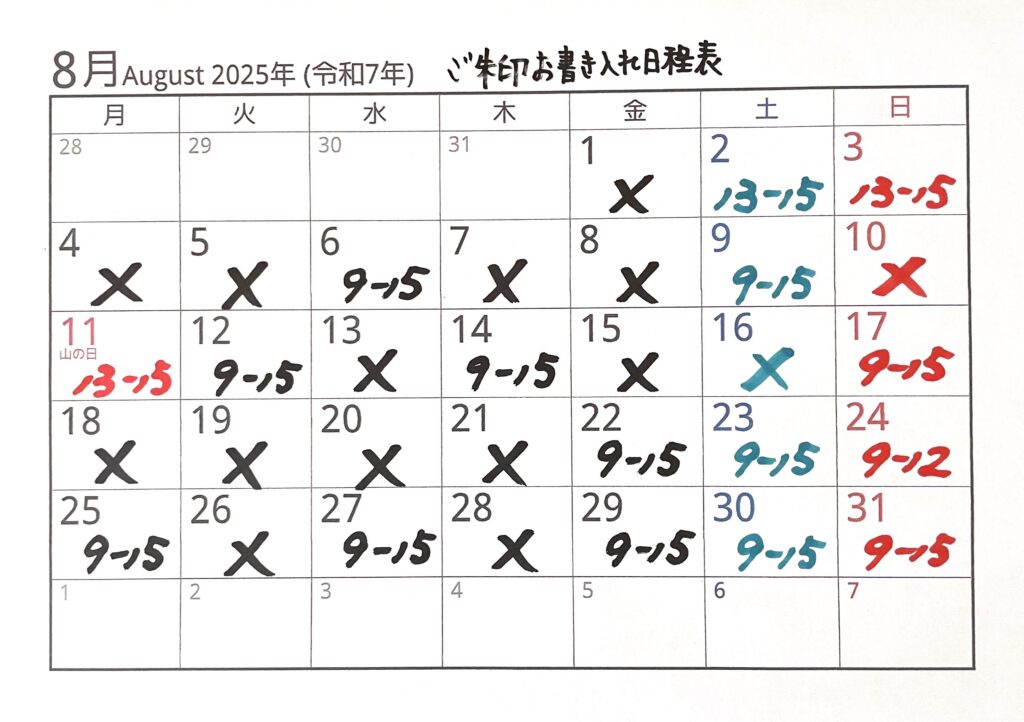 8月 August 2025年 (令和7年) ご朱印お書き入れ日程表
月 火 水 木 金 土 日
28 29 30 31 1 2 3
X 13-15 13-15
4 5 6 7 8 9 10
X X 9-15 X X 9-15 X
11 12 13 14 15 16 17
山の日
13-15 9-15 X 9-15 X X 9-15
18 19 20 21 22 23 24
X X X X 9-15 9-15 9-12
25 26 27 28 29 30 31
9-15 X 9-15 X 9-15 9-15 9-15
1 2 3 4 5 6 7